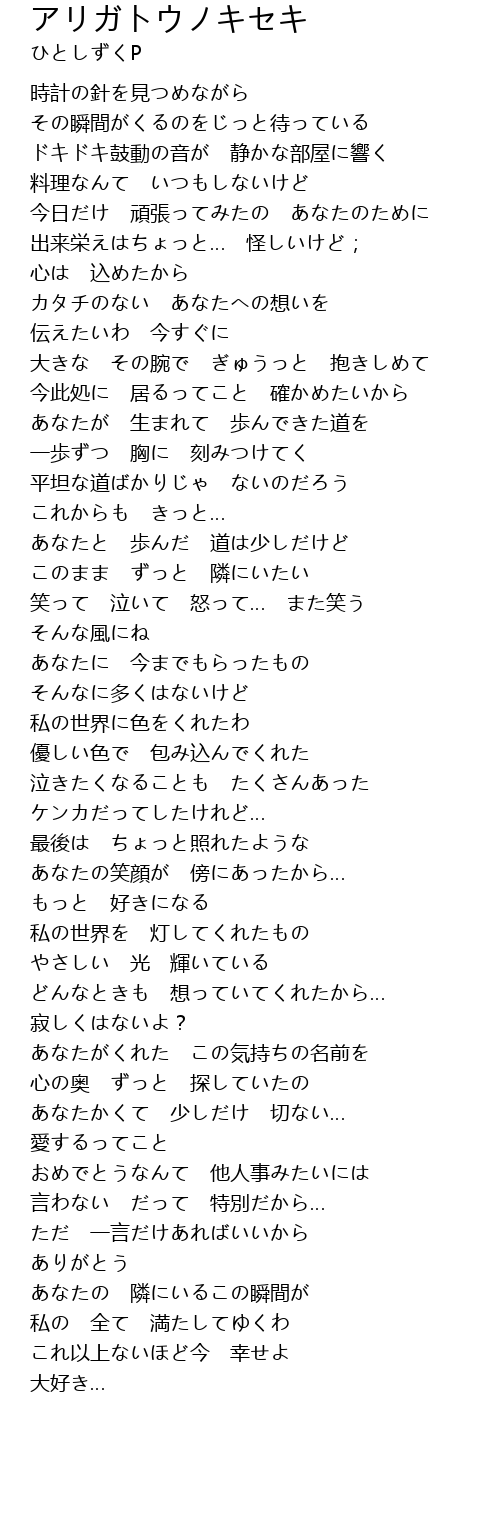 アリガトウノキセキ
ひとしずくP
時計の針を見つめながら
その瞬間がくるのをじっと待っている
ドキドキ鼓動の音が　静かな部屋に響く
料理なんて　いつもしないけど
今日だけ　頑張ってみたの　あなたのために
出来栄えはちょっと…　怪しいけど；
心は　込めたから
カタチのない　あなたへの想いを
伝えたいわ　今すぐに
大きな　その腕で　ぎゅうっと　抱きしめて
今此処に　居るってこと　確かめたいから
あなたが　生まれて　歩んできた道を
一歩ずつ　胸に　刻みつけてく
平坦な道ばかりじゃ　ないのだろう
これからも　きっと…
あなたと　歩んだ　道は少しだけど
このまま　ずっと　隣にいたい
笑って　泣いて　怒って…　また笑う
そんな風にね
あなたに　今までもらったもの
そんなに多くはないけど
私の世界に色をくれたわ
優しい色で　包み込んでくれた
泣きたくなることも　たくさんあった
ケンカだってしたけれど…
最後は　ちょっと照れたような
あなたの笑顔が　傍にあったから…
もっと　好きになる
私の世界を　灯してくれたもの
やさしい　光　輝いている
どんなときも　想っていてくれたから…
寂しくはないよ？
あなたがくれた　この気持ちの名前を
心の奥　ずっと　探していたの
あなたかくて　少しだけ　切ない…
愛するってこと
おめでとうなんて　他人事みたいには
言わない　だって　特別だから…
ただ　一言だけあればいいから
ありがとう
あなたの　隣にいるこの瞬間が
私の　全て　満たしてゆくわ
これ以上ないほど今　幸せよ
大好き…